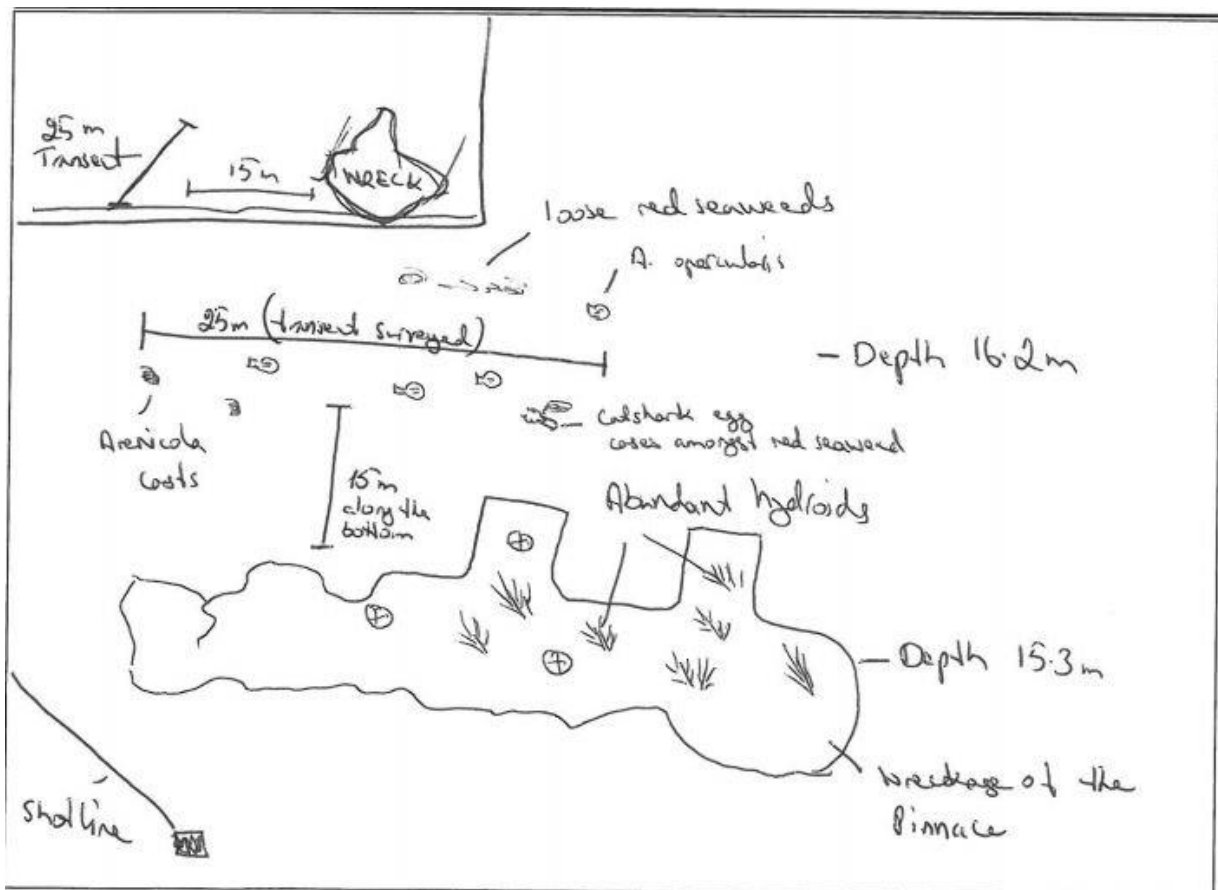 25m
Transect
15m
WRECK
loose red seaweeds
A. opercularis
25m (transect surveyed)
- Depth 16.2m
Arenicola
casts
Catshark egg
cases amongst red seaweed
15m
along the
bottom
Abundant hydroids
- Depth 15.3m
Wreckage of the
Pinnace
Shotline